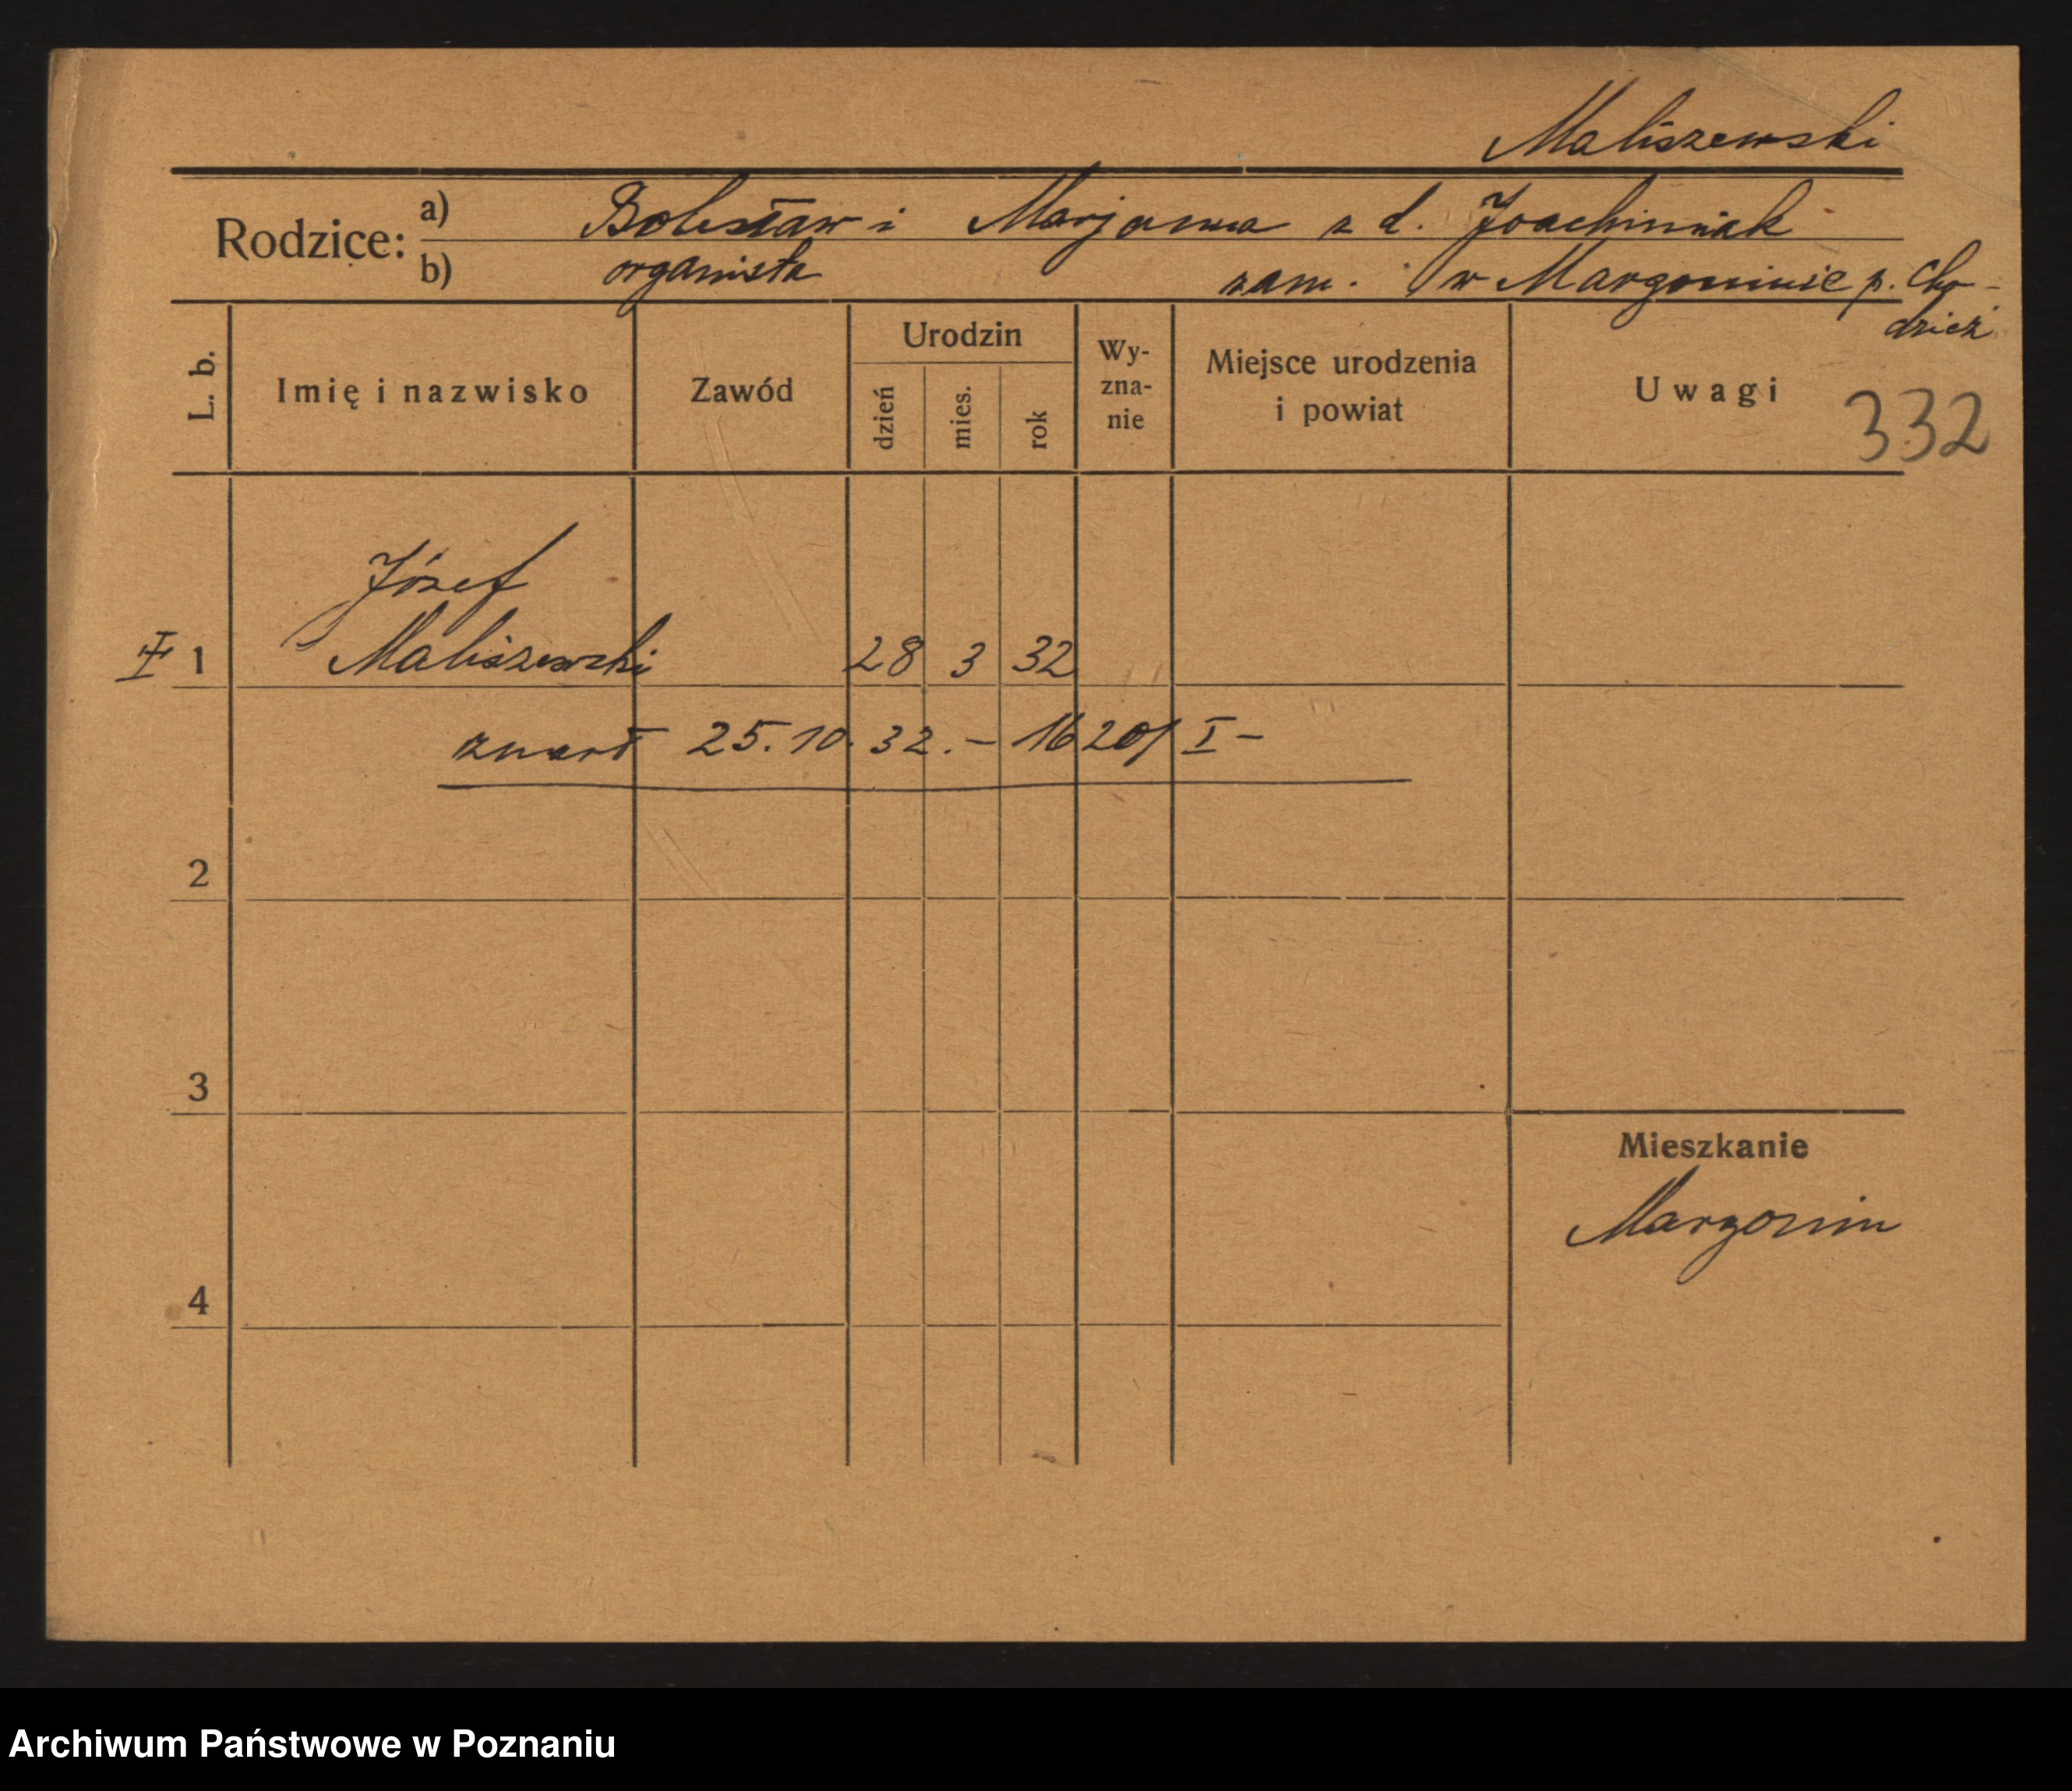 Maliszewski
Rodzice: a) Bolesław i Marjanna z d. Joachimiak
b) organista zam. w Margoninie p. Cho-
dzież
L. b. Imię i nazwisko Zawód Urodzin dzień mies. rok Wy-zna-nie Miejsce urodzenia i powiat Uwagi 332
Józef
1 Maliszewski 28 3 32
zmarł 25.10.32.- 1620/I-
2
3
Mieszkanie
Margonin
4
Archiwum Państwowe w Poznaniu